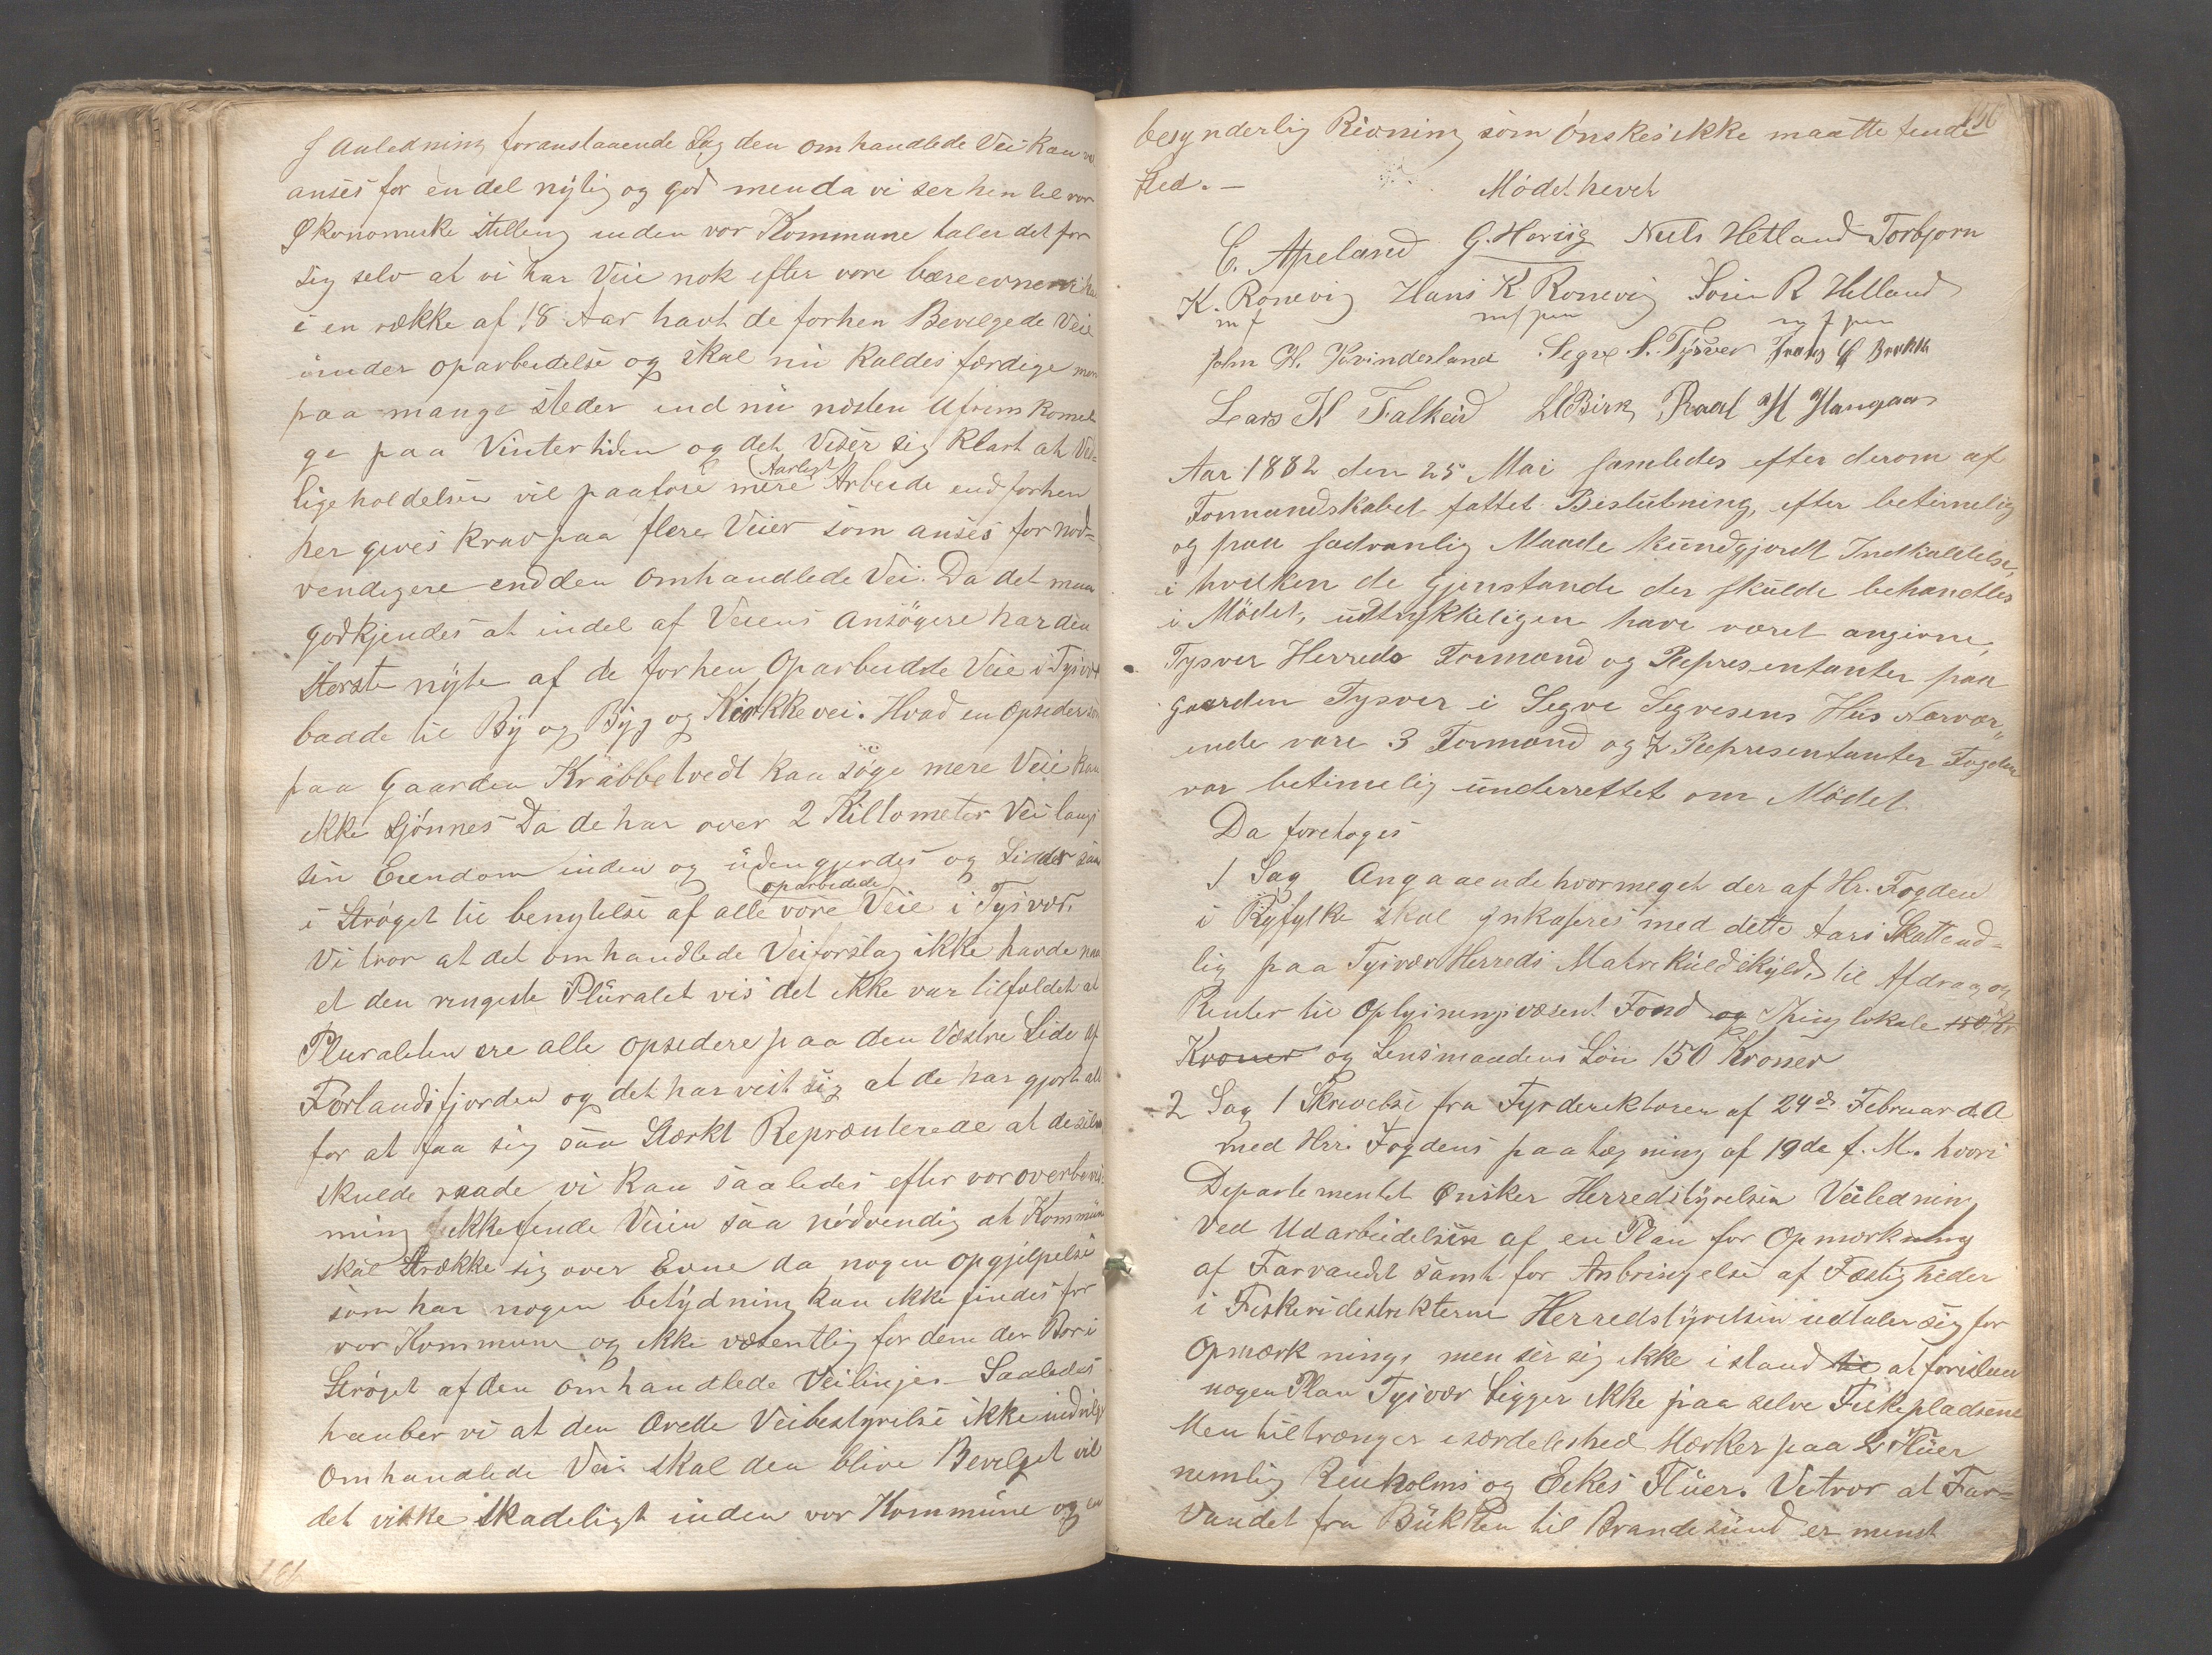 I Anledning foranstaaende Sag den omhandlede Vei kan
anses for endel nytig og god men da vi ser hen til vor
Økonomiske Stilling inden vor Kommune taler det for
sig selv at vi har Veie nok efter vore bæreevne vi har
i en række af 18 Aar havt de forhen Bevilgede Veie
under oparbeidelse og skal nu kaldes færdige men
paa mange steder end nu næsten Ufrimkomeli
ge paa Vintertiden og det Viser sig klart at Ved-
ligeholdelsen vil paaføre mere Aarligt Arbeide end forhen
her gives krav paa flere Veier som anses for nød-
vendigere end den omhandlede Vei. Da det maa
godkjendes at endel af Veiens Ansøgere har den
Største nytte af de forhen Oparbeidde Veie i Tysver
baade til By og Byg og Kirkkevei. Hvad en Opsidder
paa Gaarden Krabbetvedt kan søge mere Veie kan
ikke Skjønnes Da de har over 2 Killometer Vei langs
sin Eiendom inden og uden gjerdes og Sidder saa
i Strøget til benyttelse af alle vore oparbeidede Veie i Tysvær.
Vi tror at det omhandlede Veiforslag ikke havde naa
et den ringeste Pluralet vis det ikke var tilfældet at
Pluraleten ere alle opsidere paa den Væstre Side af
Førlandsfjorden og det har vist sig at de har gjort alt
for at faa sig saa Stærkt Reprænterede at de selv
skulde raade vi kan saaledes efter vor overbevis
ning ikke finde Veien saa nødvendig at Kommune
skal Strække sig over Evne da nogen opgjelpelse
som har nogen betydning kan ikke findes for
vor Kommune og ikke væsentlig for dem der Bor i
Strøget af den omhandlede Veilinjer – Saaledes
haaber vi at den Ærede Veibestyrelse ikke indvilge
omhandlede Vei. skal den blive Bevilget vil
det virke skadeligt inden vor Kommune og en
besynderlig Rivning som Ønskes ikke maatte finde
Sted. –
Mødet hevet
C. Apeland G. Hervig Niels Hetland Torbjørn
K. Rønevig Hans K Rønevig Søren R Helland
m f m f pen m f pen
John H. Kvinderland Segve S. Tysver
Lars H Falkeid L Birk Poul H Haugaas
Aar 1882 den 25 Mai samledes efter derom af
Formandskabet fattet Beslutning, efter betimelig
og paa sædvanlig Maade kundgjordt Indkaldelse,
i hvilken de Gjenstande der skulde behandles
i Mødet, udtrykkeligen have været angivne,
Tysver Herreds Formænd og Repræsentanter paa
Gaarden Tysver i Segve Segvesens Hus Nærvær„
ende vare 3 Formænd og 7 Repræsentanter Fogden
var betimelig underrettet om Mødet
Da foretoges
1 Sag Angaaende hvormeget der af Hr. Fogden
i Ryfylke skal Inkaseres med dette Aars Skattend-
lig paa Tysvær Herreds Matrikuldskyld, til Afdrag og
Renter til Oplysningsvæsent Fond og Thinglokale 150 Kr
Kroner og Lensmandens Løn 150 Kroner
2 Sag 1 Skrivelse fra Fyrderektøren af 24de Februar d.A
med Hrr. Fogdens paategning af 19de f. M. hvori
Departementet Ønsker Herredstyrelsen Veiledning
Ved Udarbeidelsen af en Plan for Opmærkning
af Farvandet samt for Anbringelse af Fæstigheder
i Fiskeridestrikterne Herredstyrelsen udtaler sig for
Opmærkning, men ser sig ikke istand til at foreslaa
nogen Plan Tysvær ligger ikke paa selve Fiskepladsene
Men tiltrænger isærdeleshed Mærker paa 2 Fluer
nemlig Renholms og Eikes Fluer. Vi tror at Far-
vandet fra Bukken til Brandesund er menst